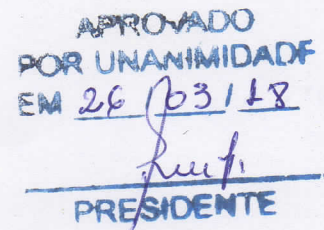 APROVADO
POR UNANIMIDADF
EM 26/03/18
PRESIDENTE